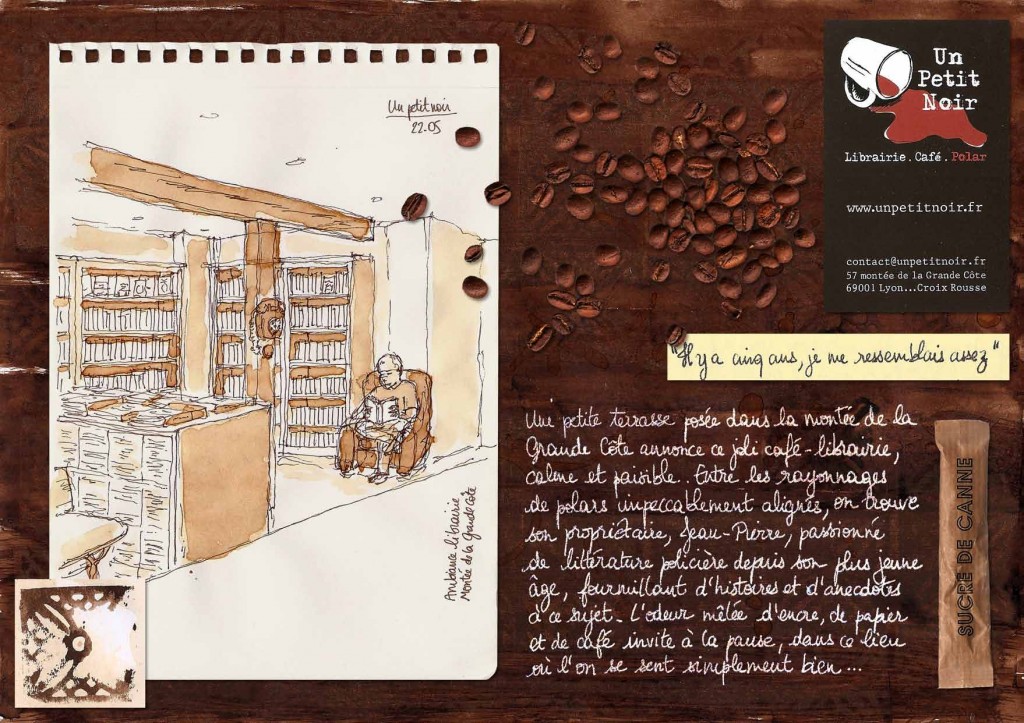 Un petit noir
22.05
Ambiance librairie
Montée de la Grande Côte
Un
Petit
Noir
Librairie.Café.Polar
www.unpetitnoir.fr
contact@unpetitnoir.fr
57 montée de la Grande Côte
69001 Lyon...Croix Rousse
"Il y a cinq ans, je me ressemblais assez"
Une petite terrasse posée dans la montée de la
Grande Côte annonce ce joli café-librairie,
calme et paisible. Entre les rayonnages
de polars impeccablement alignés, on trouve
son propriétaire, Jean-Pierre, passionné
de littérature policière depuis son plus jeune
âge, fourmillant d'histoires et d'anecdotes
à ce sujet. L'odeur mêlée d'encre, de papier
et de café invite à la pause, dans ce lieu
où l'on se sent simplement bien...
SUCRE DE CANNE